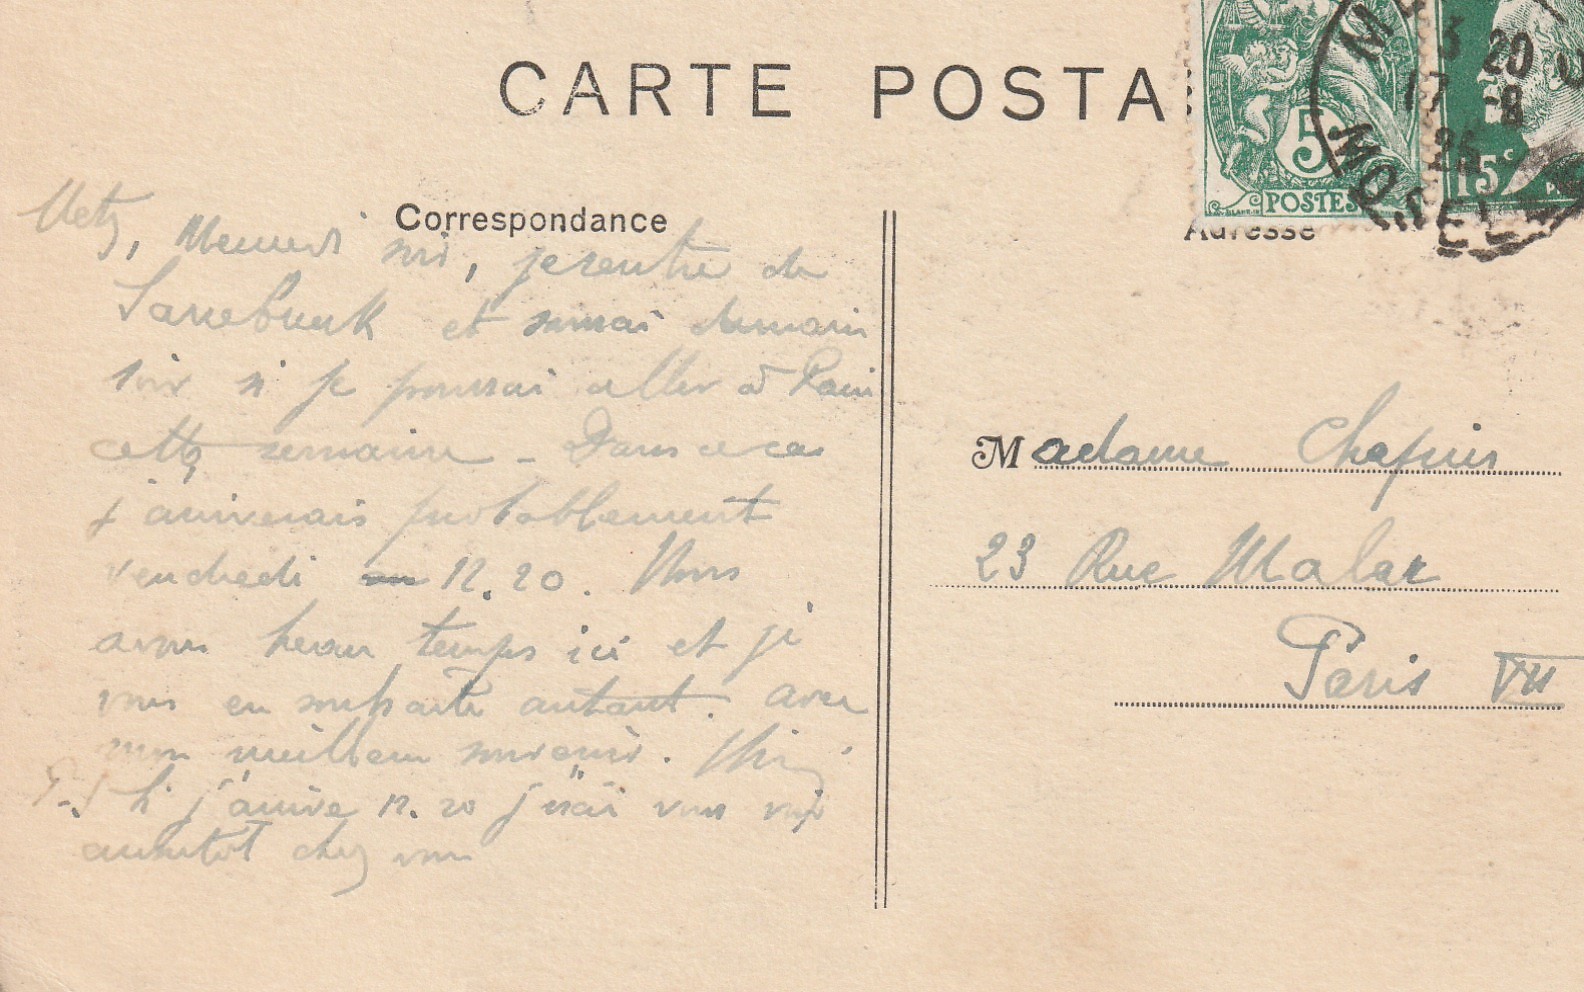 CARTE POSTA
5
POSTES
15c
3 20
17 -8
25
MOSELLE
Correspondance
Adresse
Metz, Mercredi soir, je rentre de
Sarrebruck et saurai demain
soir si je pourrai aller à Paris
cette semaine - Dans ce cas
j'arriverais probablement
vendredi 12.20. Nous
avons beau temps ici et je
vous en souhaite autant. Avec
mon meilleur souvenir.
P.S Si j'arrive 12.20 j'irai vous voir
aussitôt chez vous
Madame Chapuis
23 Rue Malar
Paris VII